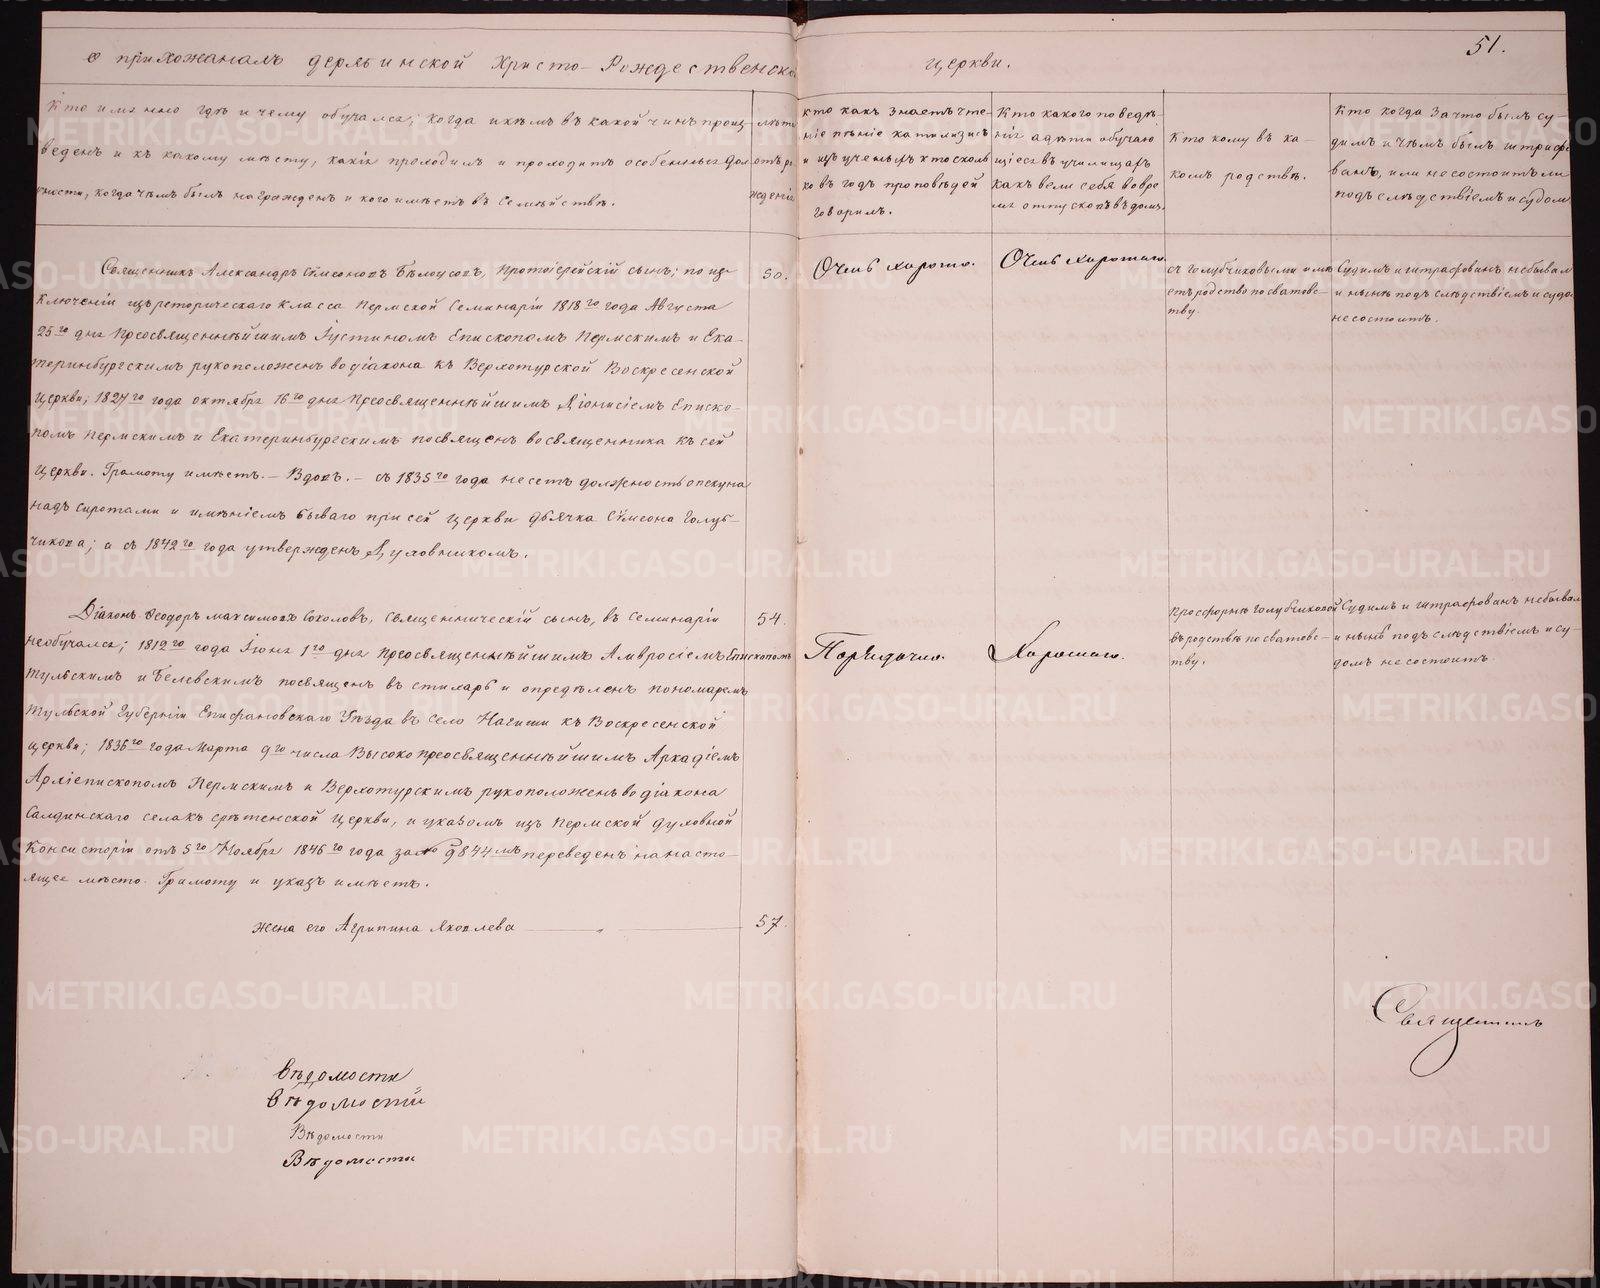 о прихожанахъ дерябинской Христо-Рождественской церкви.
51.
Кто именно гдѣ и чему обучался; когда и кѣмъ въ какой чинъ произ-
веденъ и къ какому мѣсту, какія проходилъ и проходитъ особенныя дол-
жности, когда чѣмъ былъ награжденъ и кого имѣетъ въ семействѣ.
лѣта
отъ ро
жденія
кто какъ знаетъ чте-
ніе пѣніе катихизисъ
и изъ ученыхъ кто сколь
ко въ годъ проповѣдей
говорилъ.
Кто какого поведѣ-
нія а дѣти обучаю
щіеся въ училищахъ
какъ вели себя во вре
мя отпусковъ въ домы.
Кто кому въ ка-
комъ родствѣ.
Кто когда за что былъ су-
димъ и чѣмъ былъ штрафо
ванъ, или не состоитъ ли
подъ слѣдствіемъ и судом
Священникъ Александръ Сѵмеоновъ Бѣлоусовъ, Протоіерейскій сынъ; по ис-
ключеніи изъ реторическаго класса Пермской Семинаріи 1818го года Августа
25го дня Преосвященнѣйшимъ Іустиномъ Епископомъ Пермскимъ и Ека-
теринбургскимъ рукоположенъ во діакона къ Верхотурской Воскресенской
Церкви; 1827го года октября 16го дня Преосвященнѣйшимъ Діонисіемъ Еписко-
помъ Пермскимъ и Екатеринбургскимъ посвященъ во священника къ сей
Церкви. Грамоту имѣетъ. – Вдовъ. – съ 1835го года несетъ должность опекуна
надъ сиротами и имѣніемъ бываго при сей Церкви дьячка Сѵмеона Голуб-
чикова; а съ 1842го года утвержденъ Духовникомъ.
50.
Очень хорошо.
Очень хорошаго.
съ Голубчиковыми имѣ
етъ родство по сватовс-
тву.
Судимъ и штрафованъ небывал
и нынѣ подъ слѣдствіемъ и судо
несостоитъ.
Діаконъ Ѳеодоръ Максимовъ Соколовъ, священническій сынъ, въ Семинаріи
необучался; 1812го года Іюня 1го дня Преосвященнѣйшимъ Амвросіемъ Епископомъ
Тульскимъ и Белевскимъ посвященъ въ стихарь и опредѣленъ пономаремъ
Тульской Губерніи Епифановскаго Уѣзда въ село Нагиши къ Воскресенской
церкви; 1836го года Марта 9го числа Высокопреосвященнѣйшимъ Аркадіемъ
Архіепископомъ Пермскимъ и Верхотурскимъ рукоположенъ во діакона
Салдинскаго села къ срѣтенской Церкви, и указомъ изъ Пермской Духовной
Консисторіи отъ 5го Ноября 1846го года за № 9844мъ переведенъ на насто-
ящее мѣсто. Грамоту и указъ имѣетъ.
54.
Порядочно.
Хорошаго.
Просфорнѣ Голубчиковой
въ родствѣ по сватовс-
тву.
Судимъ и штрафованъ небывал
и нынѣ подъ слѣдствіемъ и су-
домъ не состоитъ.
жена его Агрипина Яковлева
57.
Священникъ
Вѣдомости
Вѣдомостй
Вѣдомости
Вѣдомости
METRIKI.GASO-URAL.RU